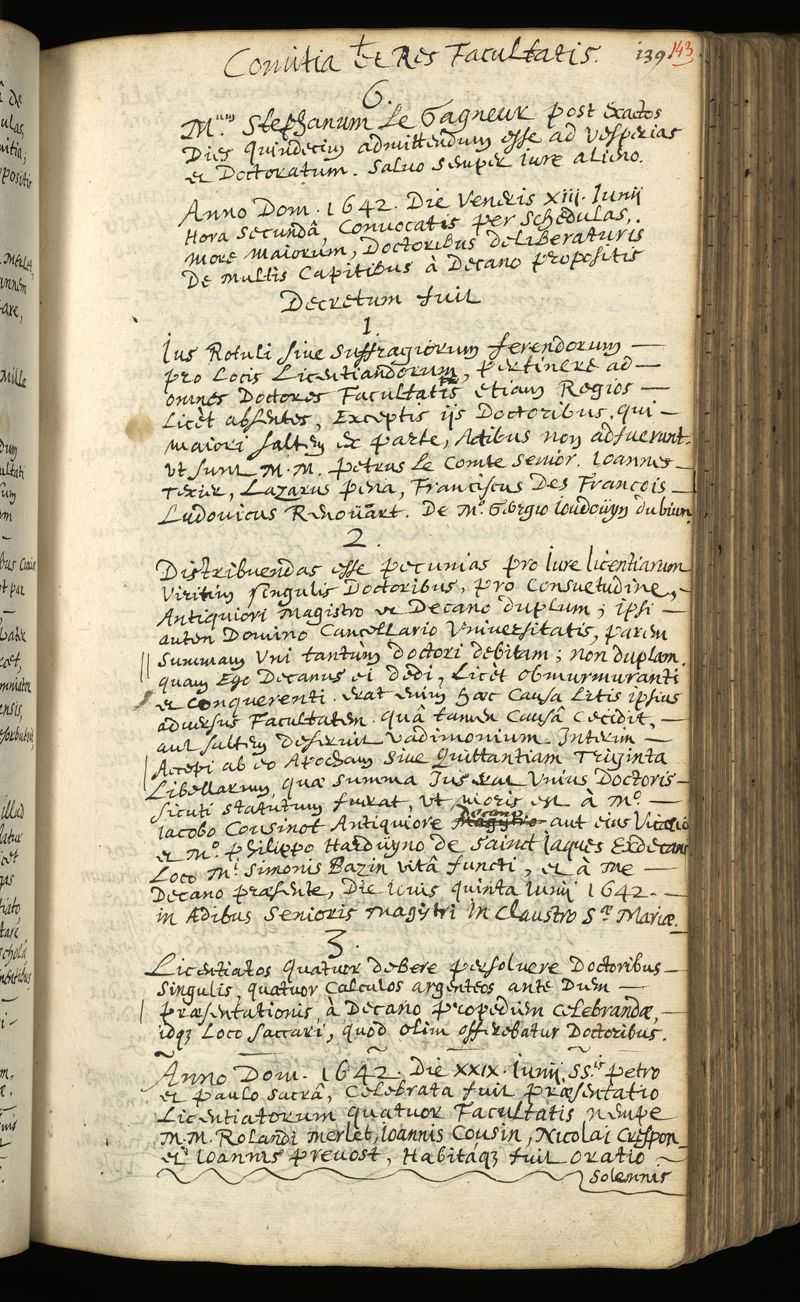 Comitia et Res Facultatis. 139 143
6.
M.um Stephanum Le Gagneur post exactos
Dies quindecim admittendum esse ad Vesperias
et Doctoratum. Salvo semper iure alieno.
Anno Dom. 1642. Die Veneris XIII. Iunij
Hora secundâ, Convocatis per schedulas,
more maiorum, Doctoribus deliberaturis
De multis Capitibus à Decano propositis
Decretum fuit
1.
Ius Rotuli sive suffragiorum ferendorum —
pro Locis Licentiandorum, pertinere ad —
omnes Doctores Facultatis etiam Regios —
Licèt absentes, Exceptis ijs Doctoribus, qui —
maiori saltem ex parte, Actibus non adfuerunt.
Ut sunt M.M. Petrus Le Comte senior. Ioannes —
Texier, Lazarus pena, Franciscus Des Francois —
Ludovicus Renoüart. De M.o Georgio Ioudoüyn dubium
2.
Distribuendas esse pecunias pro Iure licentiarum
Viritim singulis Doctoribus, pro Consuetudine, —
Antiquiori Magistro et Decano duplum; ipsi —
autem Domino Cancellario Universitatis, parem
summam Uni tantùm doctori debitam; non duplam,
quam Ego Decanus ei dedi, Licèt obmurmuranti
et conquerenti. erat enim haec Causa Litis ipsius
adversus Facultatem. quâ tamen Causâ Cecidit, —
aut saltem deseruit Vadimonium. Interim —
Accepi ab eo Apocham sive Quittantiam Triginta
Libellarum, quae summa Ius erat Unius Doctoris —
sicuti statutum fuerat, ut moris est à M.o —
Iacobo Cousinot Antiquiore Decano aut eius Vicario
et M.o philippo Harduyno de Saint Iaques Exdecano
Loco M.i Simonis Bazin vitâ functi, et à me —
Decano praesente, Die Iovis quinta Iunij 1642. —
in Aedibus Senioris magistri in Claustro S.ae Mariae.
3.
Licentiatos quatuor debere persolvere Doctoribus —
singulis, quatuor Calculos argenteos ante Diem —
praesentationis, à Decano propediem celebrandae,
idq; Loco saccari, quod olim offerebatur Doctoribus.
Anno Dom. 1642. Die XXIX. Iunij, SS.is petro
et paulo sacrâ, Celebrata fuit praesentatio
Licentiatorum quatuor Facultatis nempe
M.M. Rolandi merlet, Ioannis Cousin, Nicolai Crespon
et Ioannis prevost, Habitaq; fuit oratio
solemnis